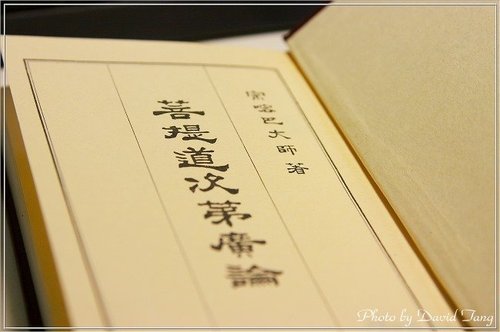 宗喀巴大師著
菩提道次第廣論
Photo by David Tang